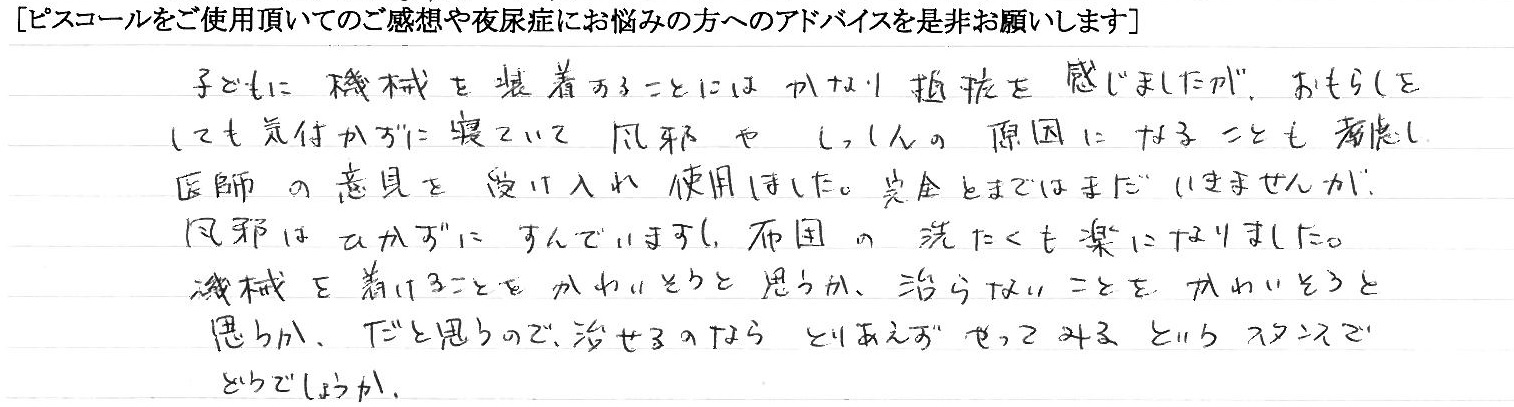 [ピスコールをご使用頂いてのご感想や夜尿症にお悩みの方へのアドバイスを是非お願いします]
子どもに 機械を装着することにはかなり抵抗を感じましたが、おもらしを
しても気付かずに寝ていて風邪やしっしんの原因になることも考慮し
医師の意見を受け入れ使用しました。完全とまではまだいきませんが、
風邪はひかずにすんでいますし、布団の洗たくも楽になりました。
機械を着けることをかわいそうと思うか、治らないことをかわいそうと
思うか、だと思うので、治せるのならとりあえずやってみるというスタンスで
どうでしょうか。